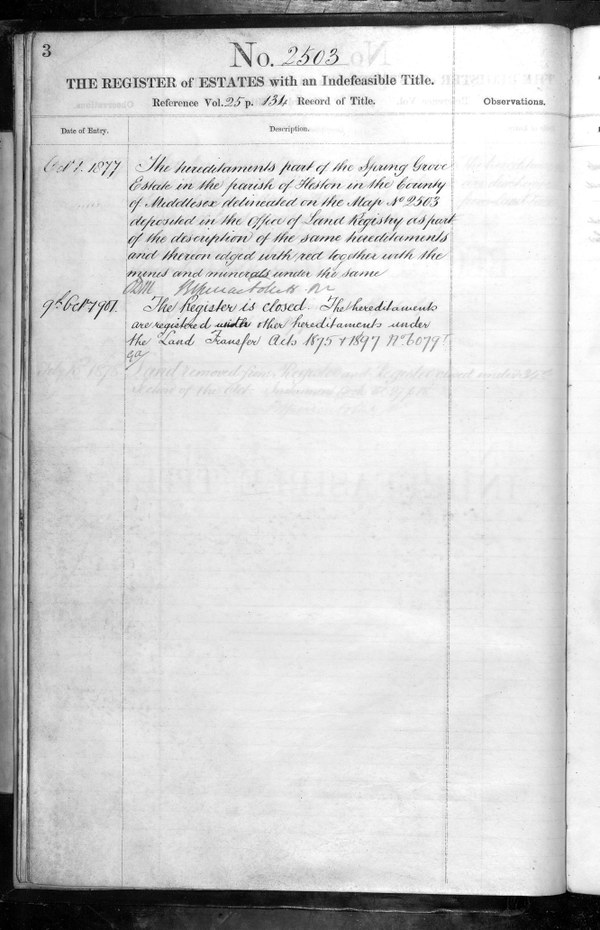 3
No. 2503
THE REGISTER of ESTATES with an Indefeasible Title.
Reference Vol. 25 p. 134 Record of Title.
Observations.
Date of Entry.
Description.
Oct 1. 1877
The hereditaments part of the Spring Grove
Estate in the parish of Heston in the County
of Middlesex delineated on the Map No 2503
deposited in the Office of Land Registry as part
of the description of the same hereditaments
and thereon edged with red together with the
mines and minerals under the same
9th Octr 1901.
The Register is closed. The hereditaments
are registered with other hereditaments under
the Land Transfer Acts 1875 & 1897 No 6079